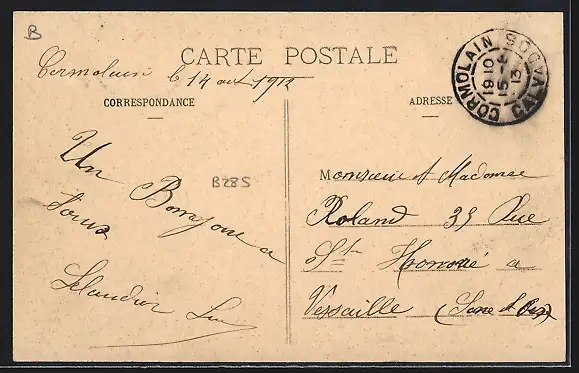 B
CARTE POSTALE
Cormolain le 14 aout 1912
CORRESPONDANCE
ADRESSE
CORMOLAIN
CALVADOS
19 10
15 - 4
13
Un Bonjour a
tous
B285
Monsieur et Madame
Roland 35 Rue
St Honoré a
Versaille (Sene et Oise)